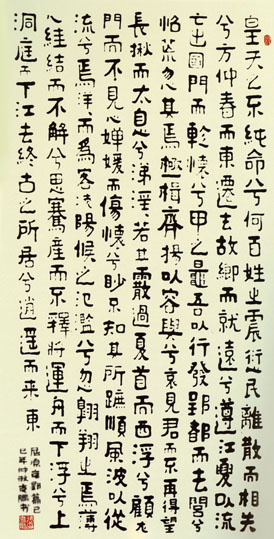 皇天之不純命兮何百姓之震愆民離散而相失
兮方仲春而東遷去故鄉而就遠兮遵江夏以流
亡出國門而軫懷兮甲之鼂吾以行發郢都而去閭兮
怊荒忽其焉極楫齊揚以容與兮哀見君而不再得望
長楸而太息兮涕淫若霰過夏首而西浮兮顧龍
門而不見心嬋媛而傷懷兮眇不知其所蹠順風波以從
流兮焉洋而爲客淩陽侯之氾濫兮忽翱翔之焉薄
心絓結而不解兮思蹇產而不釋將運舟而下浮兮上
洞庭而下江去終古之所居兮逍遥而来東
屈原哀郢篇
年仲秋書